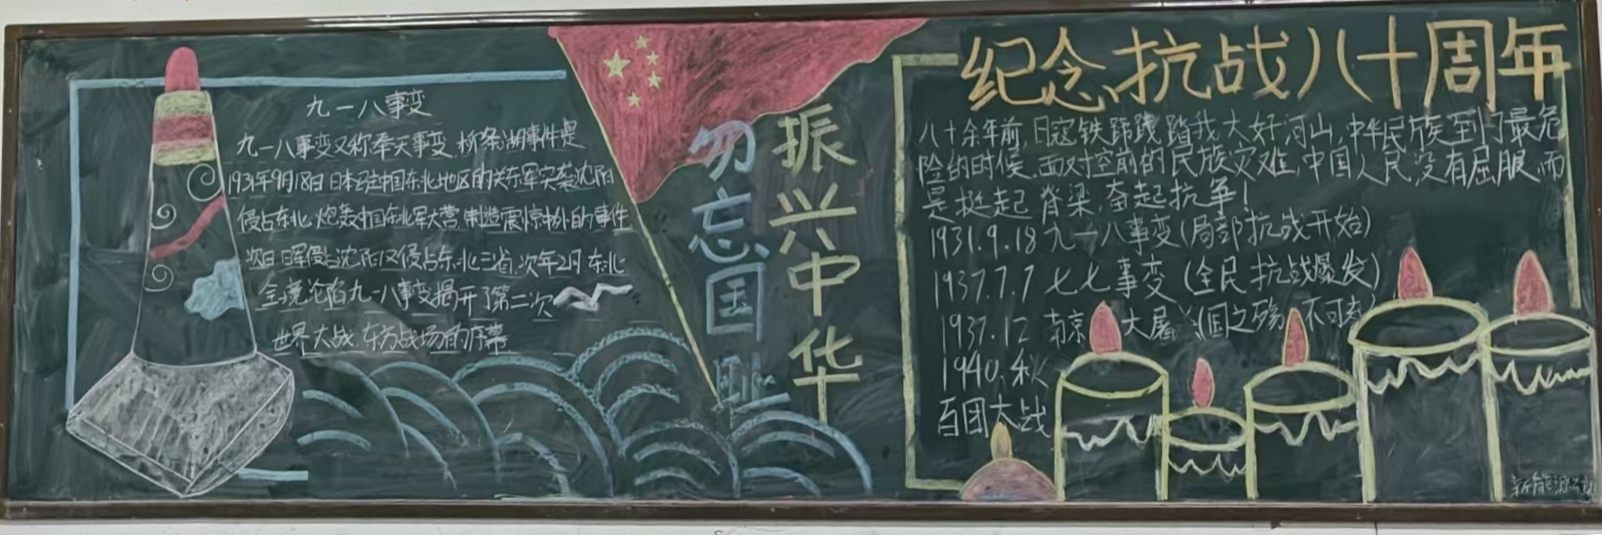 九一八事变
九一八事变又称奉天事变.柳条湖事件是
1931年9月18日日本驻中国东北地区的关东军突袭沈阳
侵占东北,炮轰中国东北军大营,制造震惊中外的事件
次日,日军侵占沈阳,又侵占东北三省,次年2月,东北
全境沦陷九一八事变揭开了第二次
世界大战.东方战场的序幕
勿忘国耻
振兴中华
纪念抗战八十周年
八十余年前,日寇铁蹄践踏我大好河山,中华民族到了最危
险的时候.面对空前的民族灾难,中国人民没有屈服,而
是挺起脊梁,奋起抗争!
1931.9.18九一八事变(局部抗战开始)
1937.7.7七七事变(全民抗战爆发)
1937.12南京大屠(国之殇,不可忘
1940.秋
百团大战
新能源